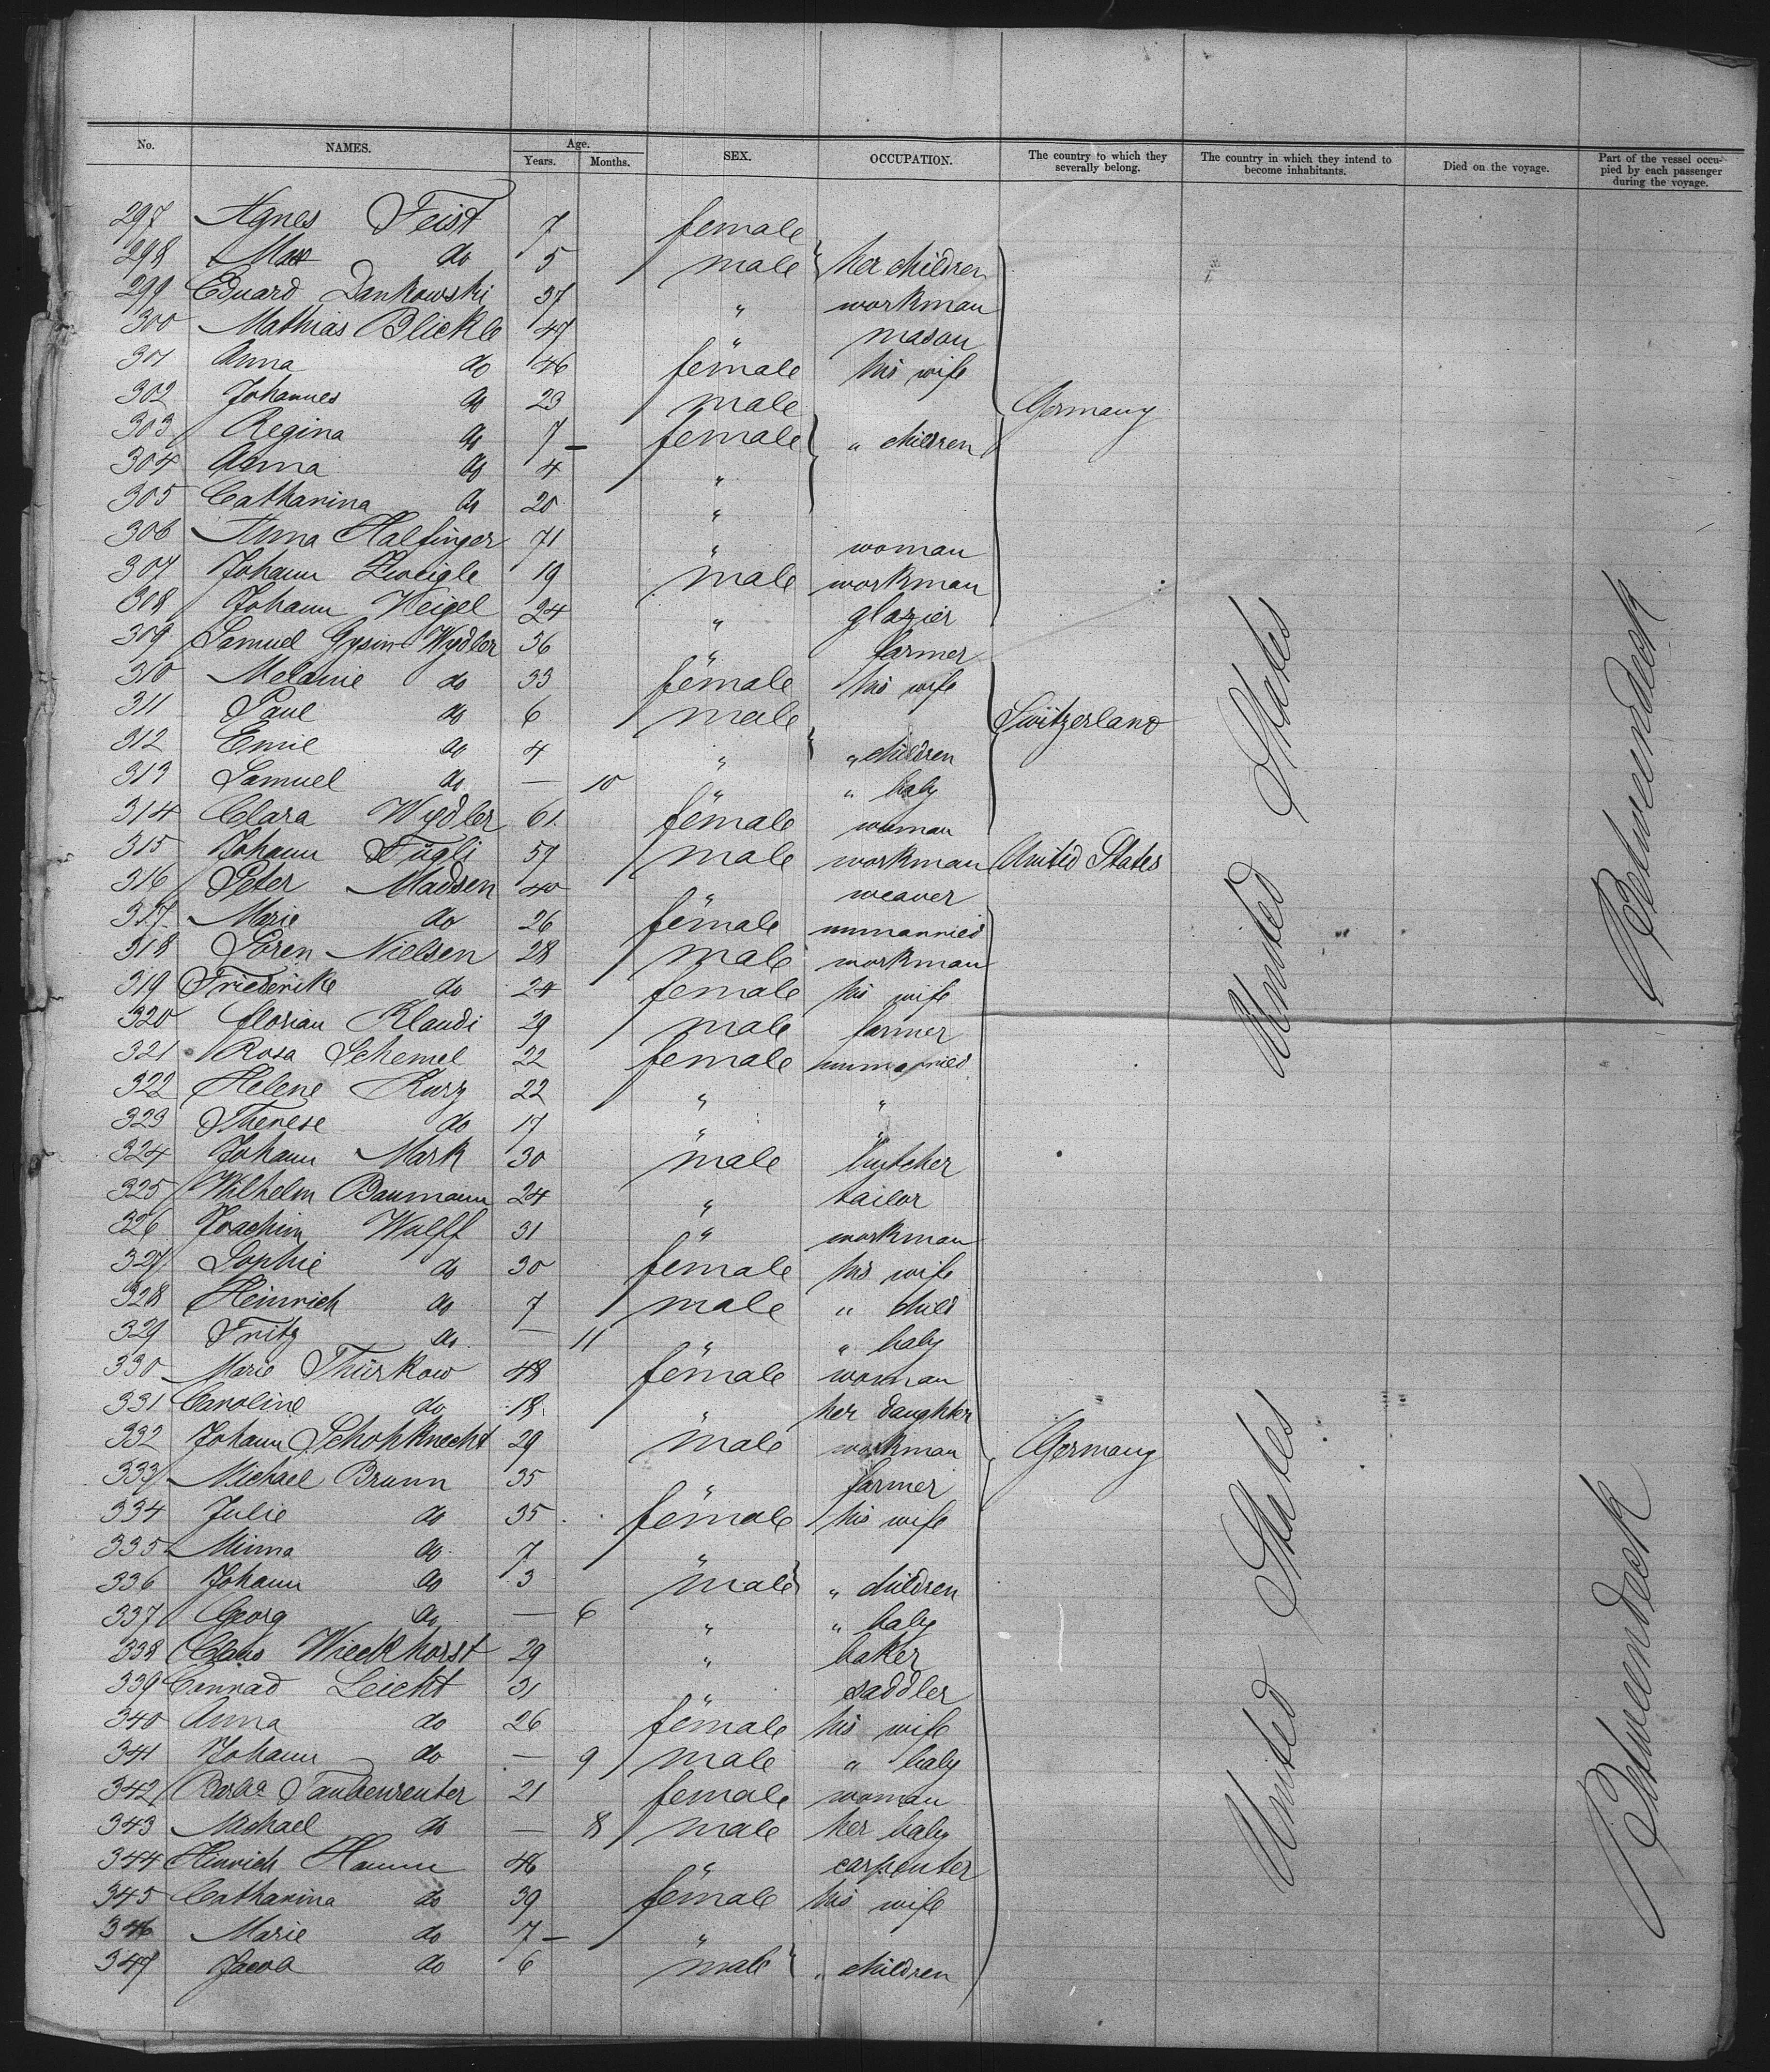 No. NAMES. Age. Years. Months. SEX. OCCUPATION. The country to which they severally belong. The country in which they intend to become inhabitants. Died on the voyage. Part of the vessel occupied by each passenger during the voyage.
297 Agnes Feist 7 female
298 Max do 5 male } her children
299 Eduard Dankowski 37 " workman
300 Mathias Blickle 47 " mason
301 Anna do 46 female his wife
302 Johannes do 23 male Germany
303 Regina do 7 – female " children
304 Anna do 4 "
305 Catharina do 20 "
306 Anna Halfinger 71 " woman
307 Johann Zweigle 19 male workman
308 Johann Weigel 24 " glazier
309 Samuel Gysin-Wydler 36 " farmer
310 Melanie do 33 female his wife
311 Paul do 6 male Switzerland
312 Emil do 4 " " children
313 Samuel do — 10 " " baby
314 Clara Wydler 61 female woman
315 Johann Fügli 57 male workman United States
316 Peter Madsen 40 " weaver
317 Marie do 26 female unmarried
318 Sören Nielsen 28 male workman
319 Friederike do 24 female his wife
320 Florian Klaudi 29 male farmer
321 Rosa Schemel 22 female unmarried
322 Helene Kurz 22 " "
323 Therese do 17 " "
324 Johann Mark 30 male butcher
325 Wilhelm Baumann 24 " tailor
326 Joachim Wulff 31 " workman
327 Sophie do 30 female his wife
328 Heinrich do 7 male " child
329 Fritz do — 11 " " baby
330 Marie Thürkow 48 female woman
331 Caroline do 18 " her daughter
332 Johann Schohknecht 29 male workman Germany
333 Michael Brunn 35 " farmer
334 Julie do 35 female his wife
335 Minna do 7 "
336 Johann do 3 male } " children
337 Georg do — 6 " " baby
338 Claus Wieckhorst 29 " baker
339 Conrad Leicht 31 " saddler
340 Anna do 26 female his wife
341 Johann do — 9 male " baby
342 Barba Taubenreuter 21 female woman
343 Michael do — 8 male her baby
344 Hinrich Hamm 46 " carpenter
345 Catharina do 39 female his wife
346 Marie do 7 – "
347 Jacob do 6 male } " children
United States
United States
Betweendeck
Betweendeck